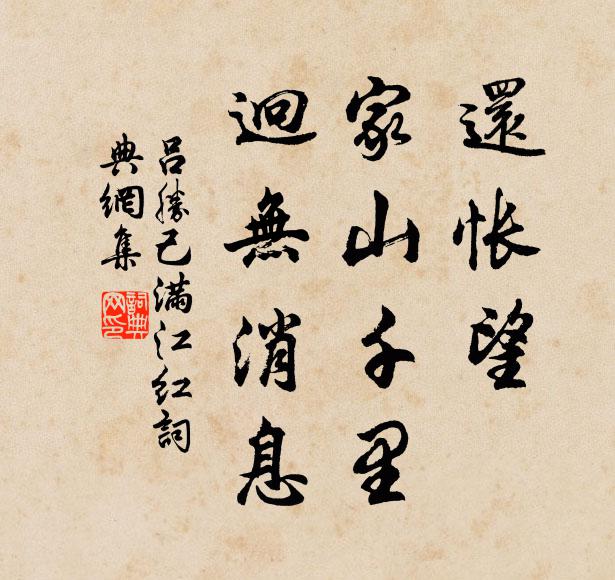 還悵望
家山千里
迥無消息
吕勝己滿江紅詞
典網集
詞典網印